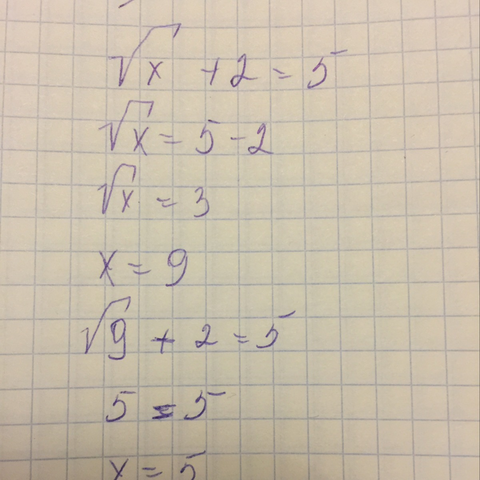 √x + 2 = 5
√x = 5 - 2
√x = 3
x = 9
√9 + 2 = 5
5 = 5
x = 5